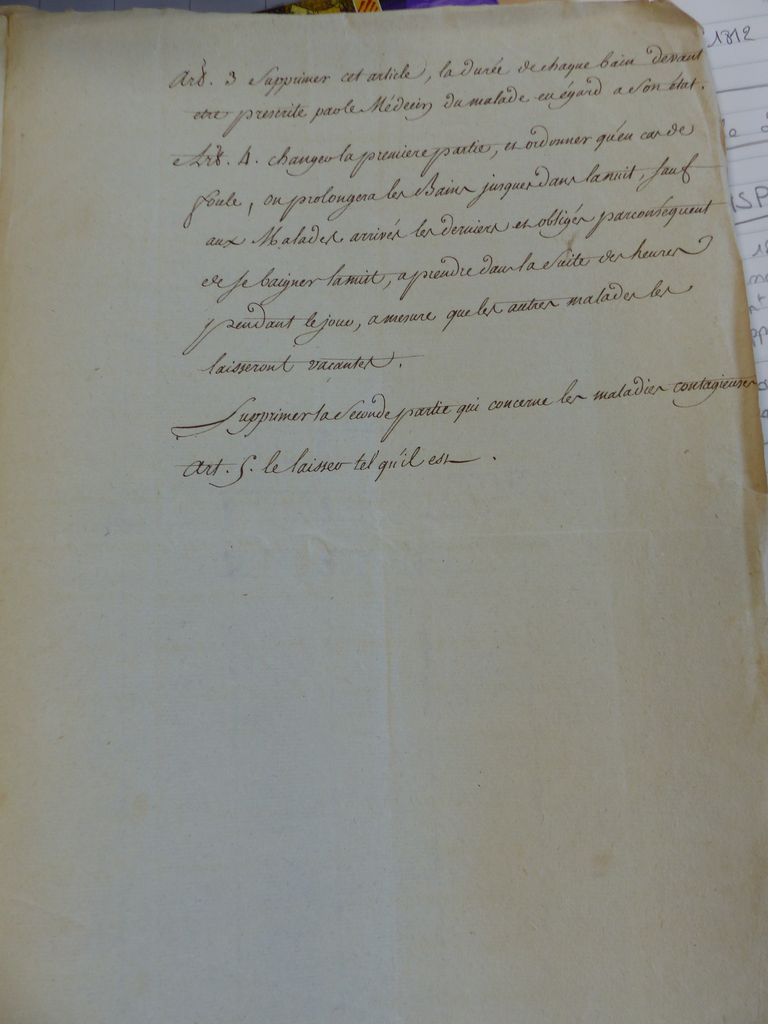 Art. 3 Supprimer cet article, la durée de chaque bain devant
etre prescrite par le Médecin du malade eu égard a son état.
Art. 4. changer la premiere partie, et ordonner qu'en cas de
foule, on prolongera les Bains jusques dans la nuit, sauf
aux Malades arrivés les derniers et obligés par conséquent
de se baigner la nuit, a prendre dans la suite des heures
pendant le jour, a mesure que les autres malades les
laisseront vacantes.
Supprimer la seconde partie qui concerne les maladies contagieuses
Art. 5. le laisser tel qu'il est.
1812
ISP